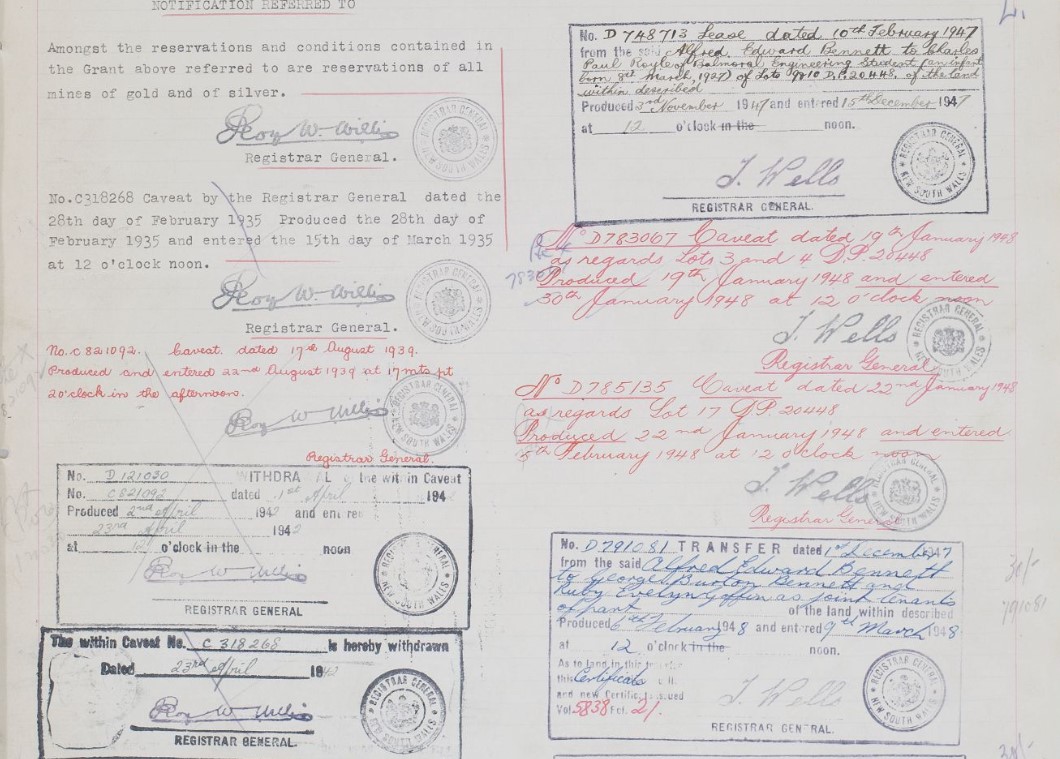 NOTIFICATION REFERRED TO
Amongst the reservations and conditions contained in
the Grant above referred to are reservations of all
mines of gold and of silver.
Roy W. Willis
Registrar General.
REGISTRAR GENERAL NEW SOUTH WALES
No.C318268 Caveat by the Registrar General dated the
28th day of February 1935 Produced the 28th day of
February 1935 and entered the 15th day of March 1935
at 12 o'clock noon.
Roy W. Willis
Registrar General.
REGISTRAR GENERAL NEW SOUTH WALES
No. C 821092. Caveat. dated 17th August 1939.
Produced and entered 22nd August 1939 at 17 mts pt
2 o'clock in the afternoon.
Roy W Willis
Registrar General.
REGISTRAR GENERAL NEW SOUTH WALES
No. D 121030 WITHDRA L the within Caveat
No. C821092 dated 1st April 194
Produced 2nd April 1942 and
23rd April 1942
at 12 o'clock in the noon
Roy W Willis
REGISTRAR GENERAL
REGISTRAR GENERAL NEW SOUTH WALES
The within Caveat No. C 318268 is hereby withdrawn
Dated 23rd April 1942
Roy W Willis
REGISTRAR GENERAL.
REGISTRAR GENERAL NEW SOUTH WALES
No. D 748713 Lease dated 10th February 1947
from the said Alfred Edward Bennett to Charles
Paul Royle of Balmoral Engineering Student (an infant
born 8rd March, 1927) of Lots 9 & 10 D.P. 20448. of the land
within described
Produced 3rd November 1947 and entered 15th December 1947
at 12 o'clock in the noon.
J. Wells
REGISTRAR GENERAL.
REGISTRAR GENERAL NEW SOUTH WALES
No D783067 Caveat dated 19th January 1948
as regards Lots 3 and 4 D.P. 20448
Produced 19th January 1948 and entered
30th January 1948 at 12 o'clock noon
J. Wells
Registrar General
REGISTRAR GENERAL NEW SOUTH WALES
No D785135 Caveat dated 22nd January 1948
as regards Lot 17 D.P. 20448
Produced 22nd January 1948 and entered
5th February 1948 at 12 o'clock noon
J. Wells
Registrar General
REGISTRAR GENERAL NEW SOUTH WALES
No. D791081 TRANSFER dated 1st December 1947
from the said Alfred Edward Bennett
to George Burton Bennett and
Ruby Evelyn Giffin as joint tenants
of part of the land within described
Produced 6th February 1948 and entered 9th March 1948
at 12 o'clock in the noon.
As to land in this transfer
this Certificate
and new Certific issued
Vol. 5838 Fol. 21.
J. Wells
REGISTRAR GENERAL.
REGISTRAR GENERAL NEW SOUTH WALES
791081